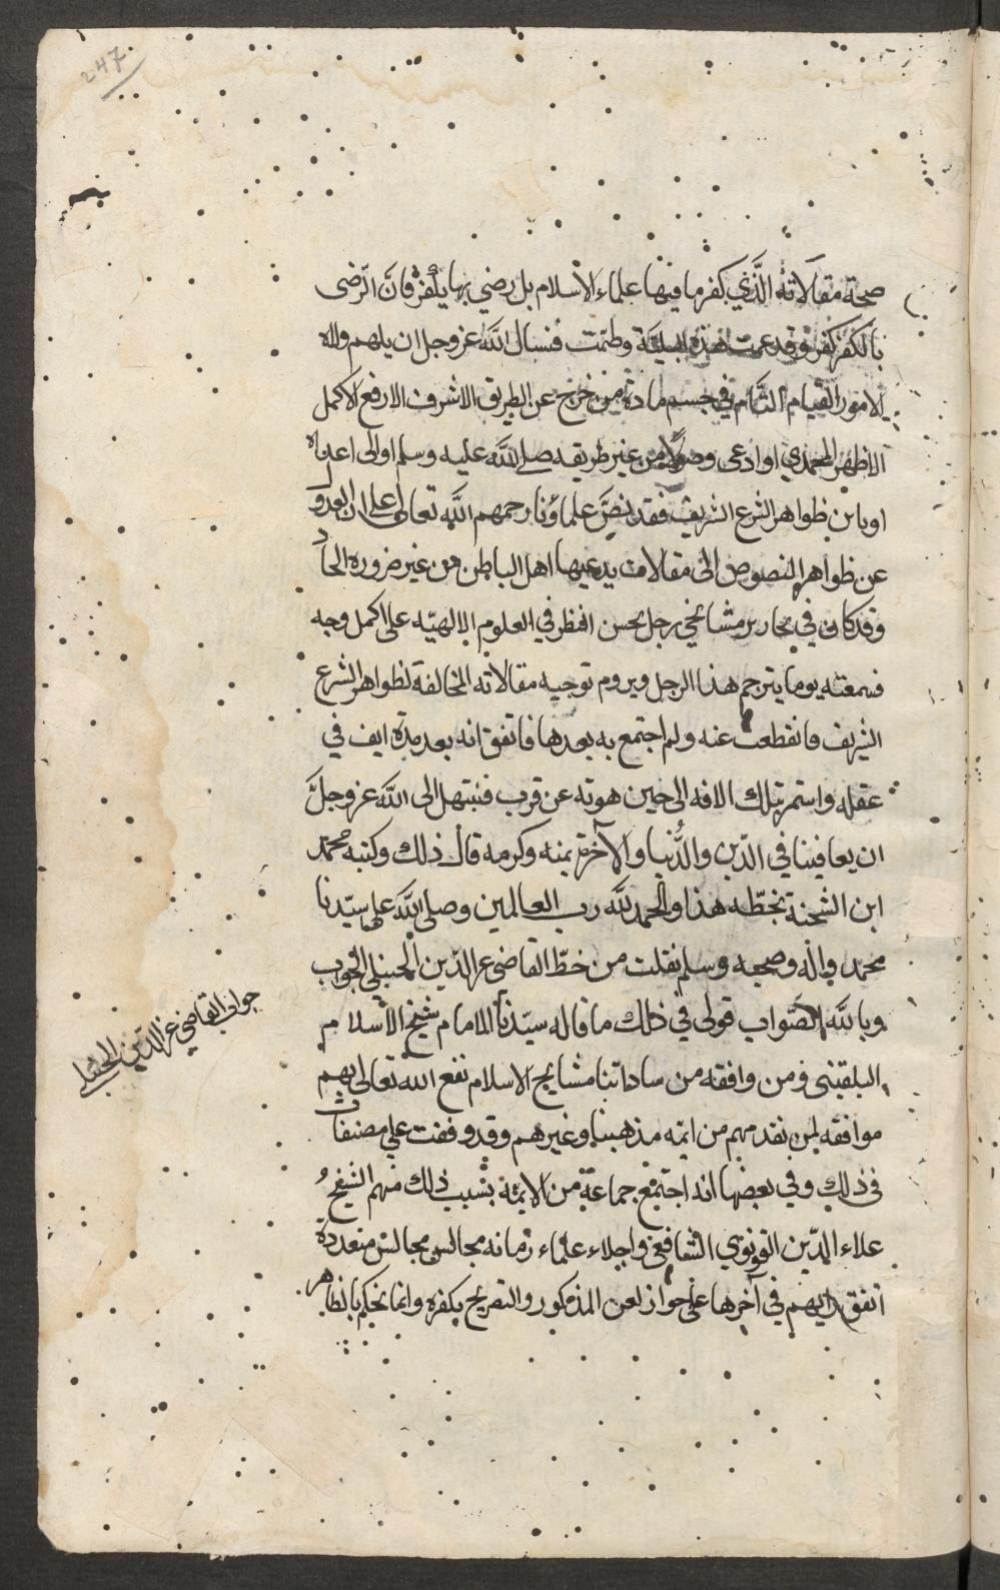 ٢٤٧
صحة مقالاته الذي كفرها فيها علماء الاسلام بل رضي بها يكفر فان الرضى
بالكفر كفر وقد عمت هذه البلية وطمت فنسال الله عز وجل ان يلهم ولاه
الامور القيام التام في حسم مادة من خرج عن الطريق الاشرف الارفع الاكمل
الاظهر المحمدي او ادعى وصولا من غير طريقه صلى الله عليه وسلم اوالى اعداه
او باين ظواهر الشرع الشريف فقد نص علماؤنا رحمهم الله تعالى على ان العدو
عن ظواهر النصوص الى مقالات يدعيها اهل الباطن من غير ضروره الحاد
وقد كان في مشائخي رجل يحسن النظر في العلوم الالهيه على اكمل وجه
فسمعته يوما يترجم هذا الرجل ويروم توجيه مقالاته المخالفة لظواهر الشرع
الشريف فانقطعت عنه ولم اجتمع به بعدها فاتفق انه بعد مدة ايف في
عقله واستمر بتلك الافه الى حين موته عن قرب فنبتهل الى الله عز وجل
ان يعافينا في الدين والدنيا والآخرة بمنه وكرمه قال ذلك وكتبه محمد
ابن الشحنة بخطه هذا والحمد لله رب العالمين وصلى الله على سيدنا
محمد واله وصحبه وسلم نقلت من خط القاضي عز الدين الحنبلي الجواب
وبالله الصواب قولي في ذلك ما قاله سيدنا الامام شيخ الاسلام
البلقيني ومن وافقه من ساداتنا مشايخ الاسلام نفع الله تعالى بهم
موافقه لمن تقدمهم من ايمه مذهبنا وغيرهم وقد وقفت على مصنفات
في ذلك وفي بعضها انه اجتمع جماعة من الايمة بسبب ذلك منهم الشيخ
علاء الدين القونوي الشافعي واجلاء علماء زمانه مجالس مجالس متعددة
اتفق رايهم في آخرها على جواز لعن المذكور والتصريح بكفره وانما نحكم بالظاهر
جواب القاضي عز الدين الحنبلي